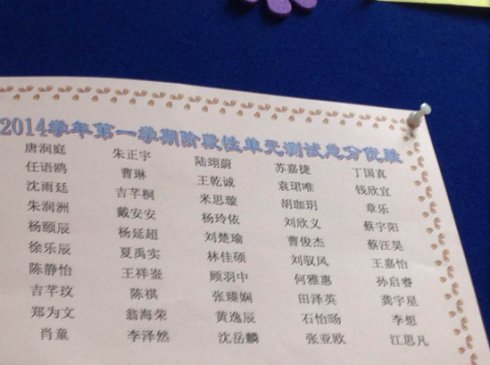 2014学年第一学期阶段性单元测试总分优胜
唐润庭 朱正宇 陆翊蔚 苏嘉捷 丁国真
任语鸥 曹琳 王乾诚 袁珺唯 钱欣宜
沈雨廷 吉芊桐 米思璇 胡咖玥 章乐
朱润洲 戴安安 杨玲依 刘欣义 蔡宇阳
杨颐辰 杨延超 刘楚瑜 曹俊杰 蔡汪昊
徐乐辰 夏禹实 林佳硕 刘驭风 王嘉怡
陈静怡 王祥崟 顾羽中 何雅惠 孙启睿
吉芊玟 陈祺 张臻娴 田泽英 龚宇星
郑为文 翁海荣 黄逸辰 石怡旸 李想
肖童 李泽然 沈岳麟 张亚欧 江思凡